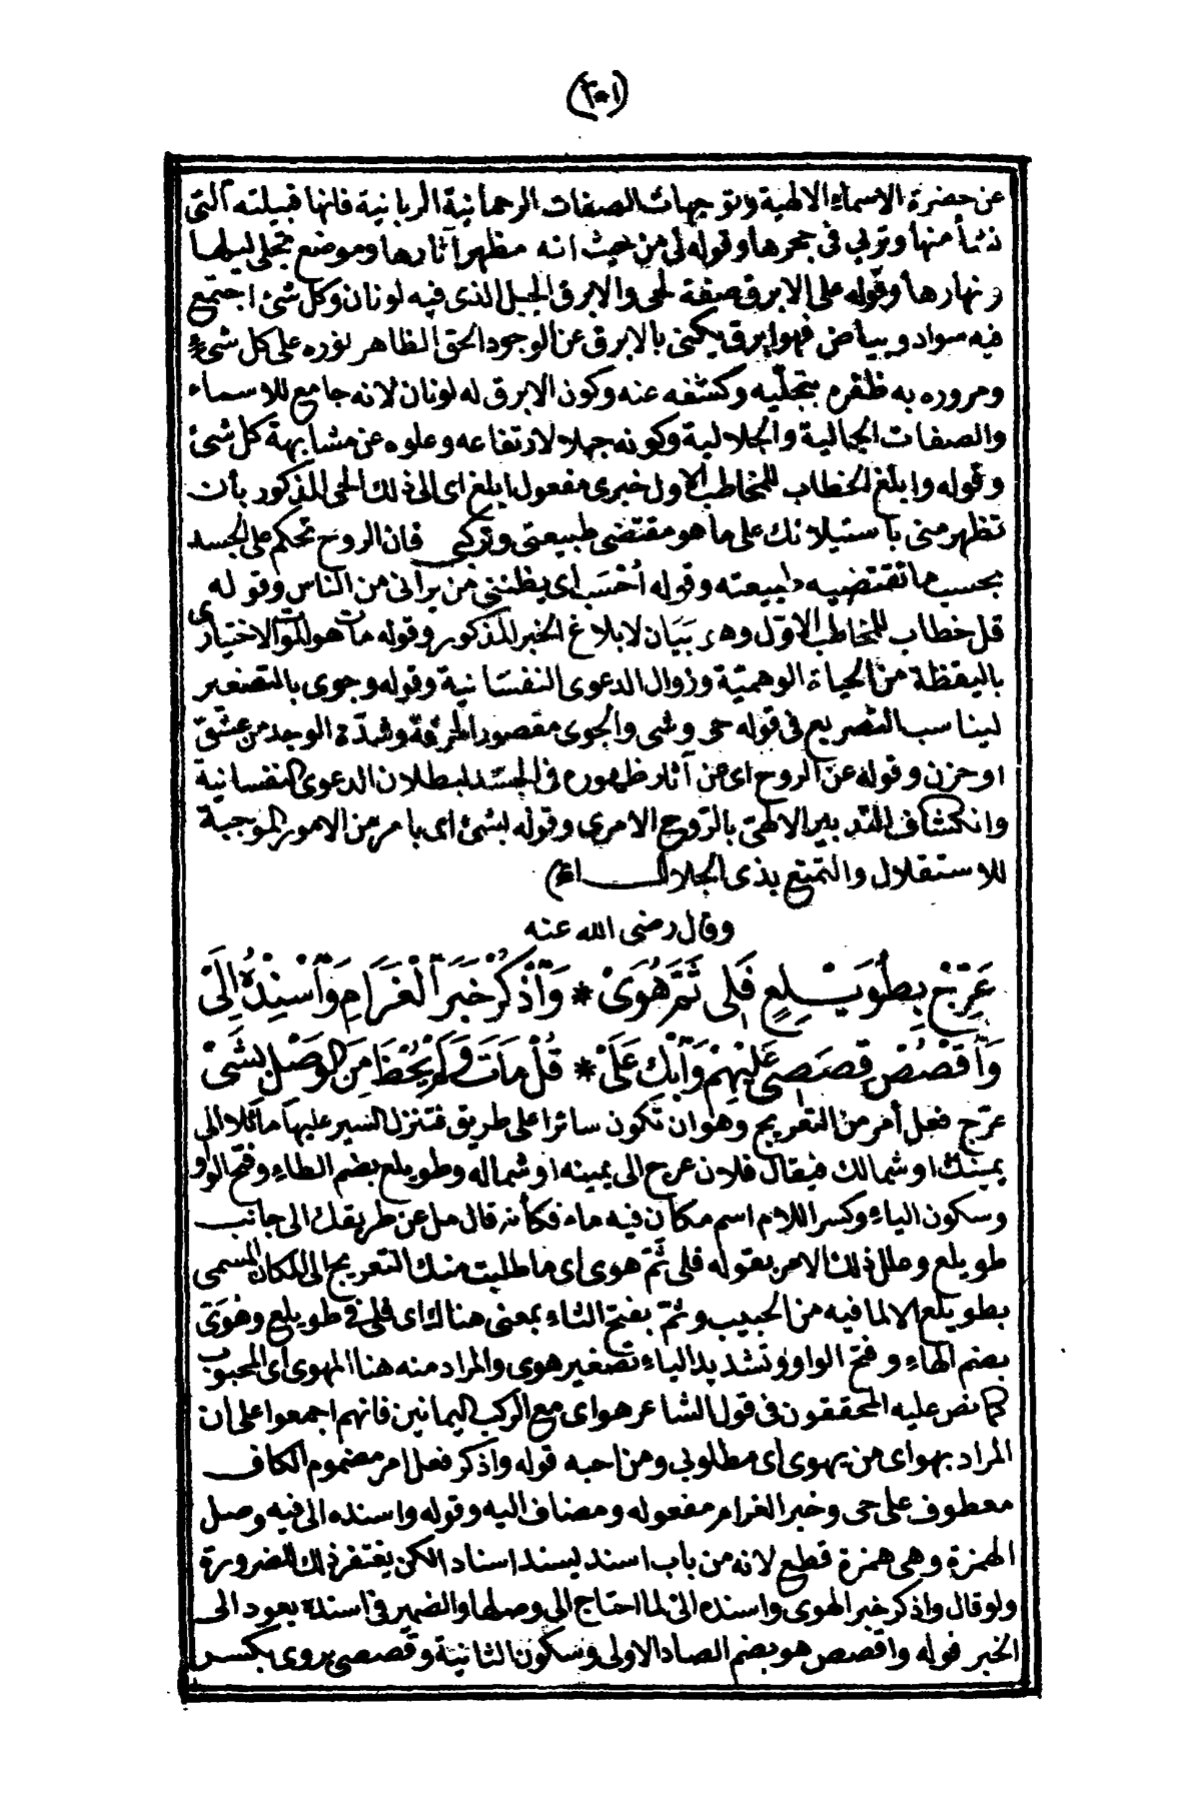 (٢٠١)
عن حضرة الاسماء الالهية وتوجهات الصفات الرحمانية الربانية فانها قبيلته التى
نشأ منها وتربى فى حجرها وقوله لى من حيث انه مظهر آثارها وموضع تجلى ليلها
ونهارها وقوله على الابرق صفة لحى والابرق الجبل الذى فيه لونان وكل شئ اجتمع
فيه سواد وبياض فهو ابرق يكنى بالابرق عن الوجود الحق الظاهر نوره على كل شئ
ومروره به ظفره بتجليه وكشفه عنه وكون الابرق له لونان لانه جامع للاسماء
والصفات الجمالية والجلالية وكونه جبلا لارتفاعه وعلوه عن مشابهة كل شئ
وقوله وابلغ الخطاب للمخاطب الاول خبرى مفعول ابلغ اى الى ذلك الحى المذكور بأن
تظهر منى باستيلائك على ما هو مقتضى طبيعتى وتركيبى فان الروح تحكم على الجسد
بحسب ما تقتضيه طبيعته وقوله أحْسَب اى يظننى من يرانى من الناس وقوله
قل خطاب للمخاطب الاوّل وهو بَيَان لابلاغ الخبر المذكور وقوله مات هو الموت الاختيارى
باليقظة من الحياة الوهميّة وزوال الدعوى النفسَانية وقوله وجوى بالتصغير
ليناسب التصريع فى قوله حى وشى والجوى مقصور الحرقة وشدّة الوجد من عشق
او حزن وقوله عن الروح اى عن آثار ظهوره فى الجسَد لبطلان الدعوى النفسانية
وانكشاف التدبير الالهىّ بالرّوح الامرى وقوله لشئ اى بامر من الامور الموجبة
للاستقلال والتمتع بذى الجلال اﻫ
وقال رضى الله عنه
عَرِّجْ بِطُوَيْـلِعٍ فَلِى ثَمَّ هُوَىْ * وَاذْكُرْ خَبَرَ الْغَرَامِ وَاسْنِدْهُ اِلَىْ
وَاقْصُصْ قِصَصِى عَلَيْهِمْ وَابْكِ عَلَىْ * قُلْ مَاتَ وَلَمْ يُحْظَ مِنَ الْوَصْلِ بِشَىْ
عرّج فعل أمر من التعريج وهو ان تكون سائرا على طريق فتنزل السير عليها مائلا الى
يمينك او شمالك فيقال فلان عرج الى يمينه او شماله وطويلع بضم الطاء وفتح الواو
وسكون الياء وكسر اللام اسم مكان فيه ماء فكأنه قال مل عن طريقك الى جانب
طويلع وعلل ذلك الامر بقوله فلى ثَمّ هوى اى ما طلبت منك التعريج الى المكان المسمى
بطويلع الا لما فيه من الحبيب وثمّ بفتح الثاء بمعنى هناك اى فلى فى طويلع وهُوَىّ
بضم الهاء وفتح الواو وتشديد الياء تصغير هوى والمراد منه هنا المهوى اى المحبوب
كما نص عليه المحققون فى قول الشاعر هواى مع الركب اليمانين فانهم اجمعوا على ان
المراد بهواى من يهوى اى مطلوبى ومن احبه قوله واذكر فعل امر مضموم الكاف
معطوف على حى وخبر الغرام مفعوله ومضاف اليه وقوله واسنده الى فيه وصل
الهمزة وهى همزة قطع لانه من باب اسند يسند اسناد الكن يغتفر ذلك للضرورة
ولو قال واذكر خبر الهوى واسنده الى لما احتاج الى وصلها والضمير فى اسنده يعود الى
الخبر قوله واقصص هو بضم الصاد الاولى وسكون الثانية وقصصى يروى بكسر